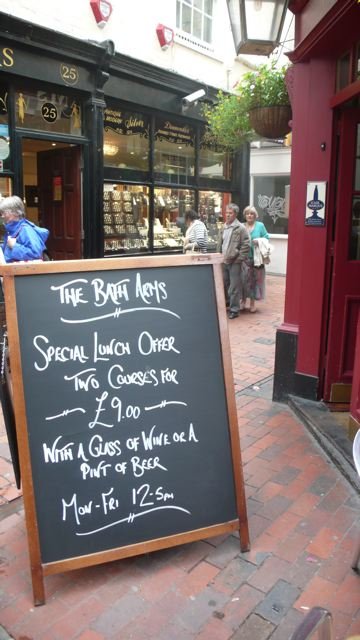 25
25
Silver
Diamonds
THE BATH ARMS
SPECIAL LUNCH OFFER
TWO COURSES FOR
£9.00
WITH A GLASS OF WINE OR A
PINT OF BEER
MON-FRI 12-5PM